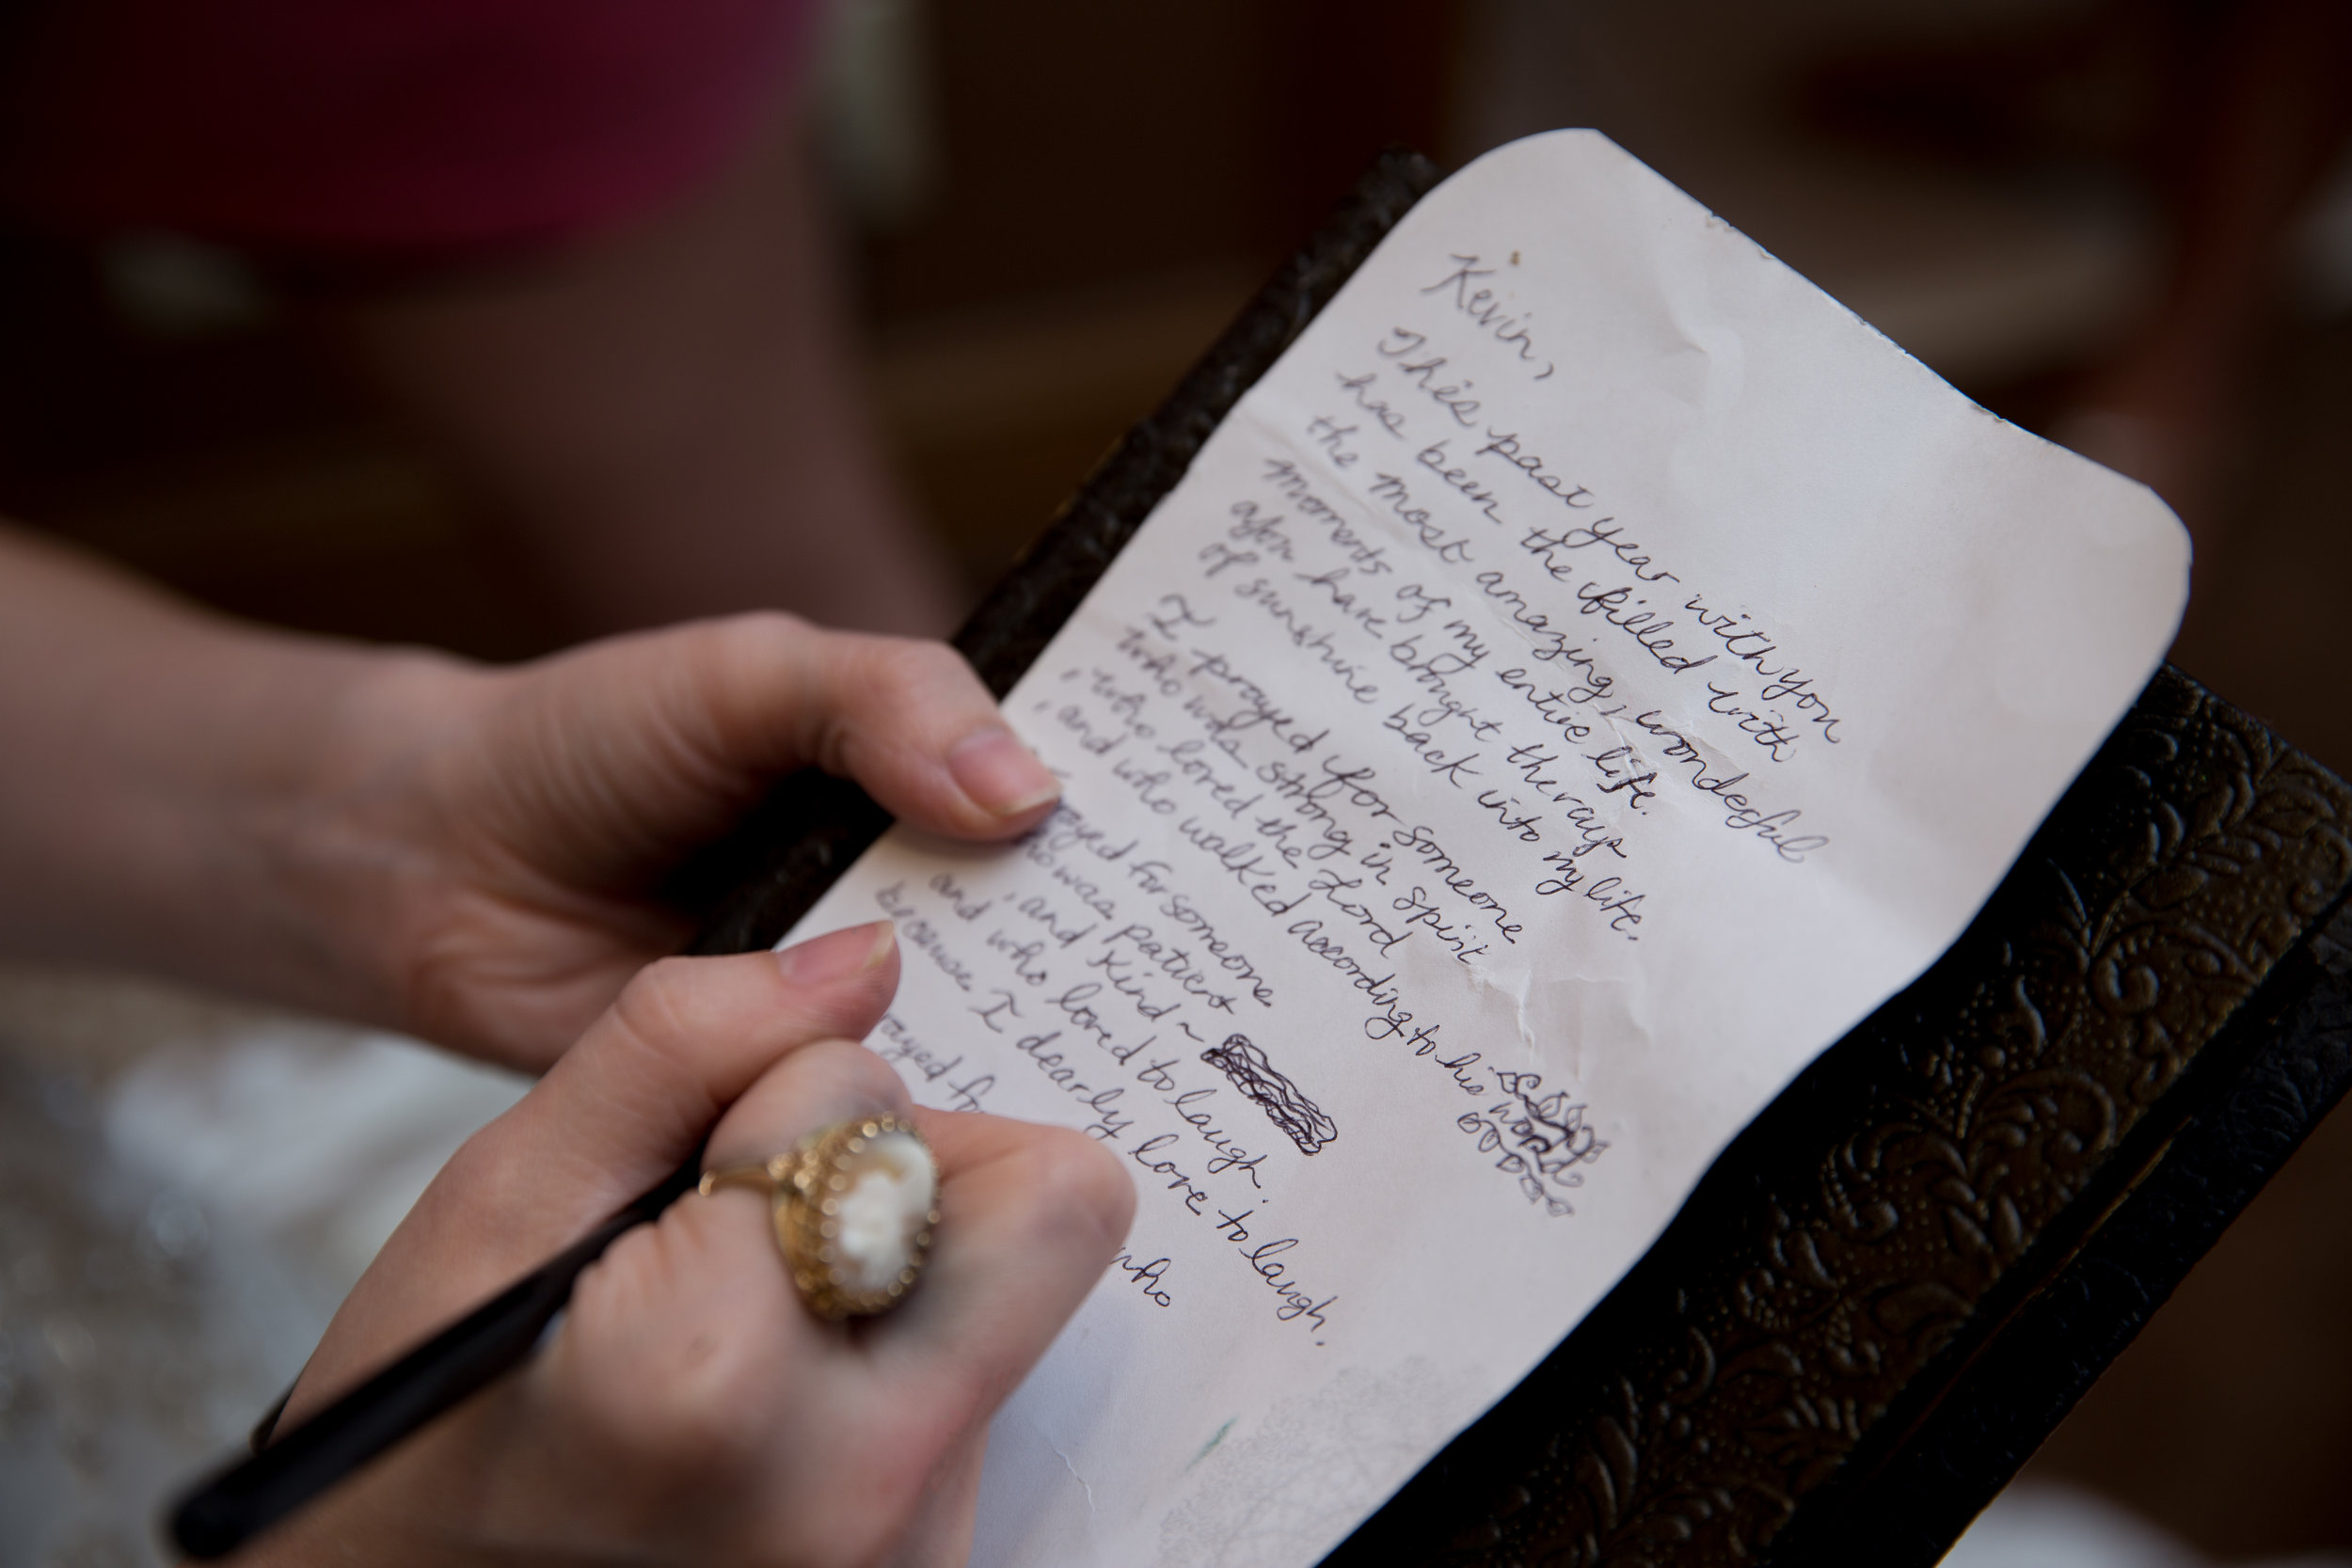 Kevin,
This past year with you
has been the filled with
the most amazing, wonderful
moments of my entire life.
you have brought the rays
of sunshine back into my life.
I prayed for someone
who was strong in spirit
, who loved the Lord
, and who walked according to his word
prayed for someone
who was patient
, and kind ~
and who loved to laugh.
because I dearly love to laugh.
rayed for who